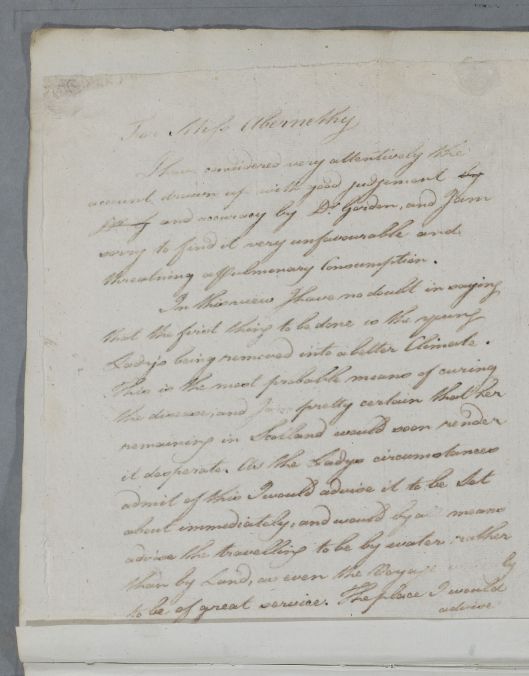 For Miss Abernethy
I have considered very attentively the
account drawn up with good judgement by
and accuracy by Dr. Gordon, and I am
sorry to find it very unfavourable and
threatning a Pulmonary Consumption.
In this view I have no doubt in saying
that the first thing to be done is the young
Ladys being removed into a better Climate.
This is the most probable means of curing
the disease, and I am pretty certain that her
remaining in Scotland would soon render
it desperate. As the Ladys circumstances
admit of this I would advise it to be set
about immediately, and would by a means
advise the travelling to be by water rather
than by Land, as even the Voyage by
to be of great service. The place I would
advise